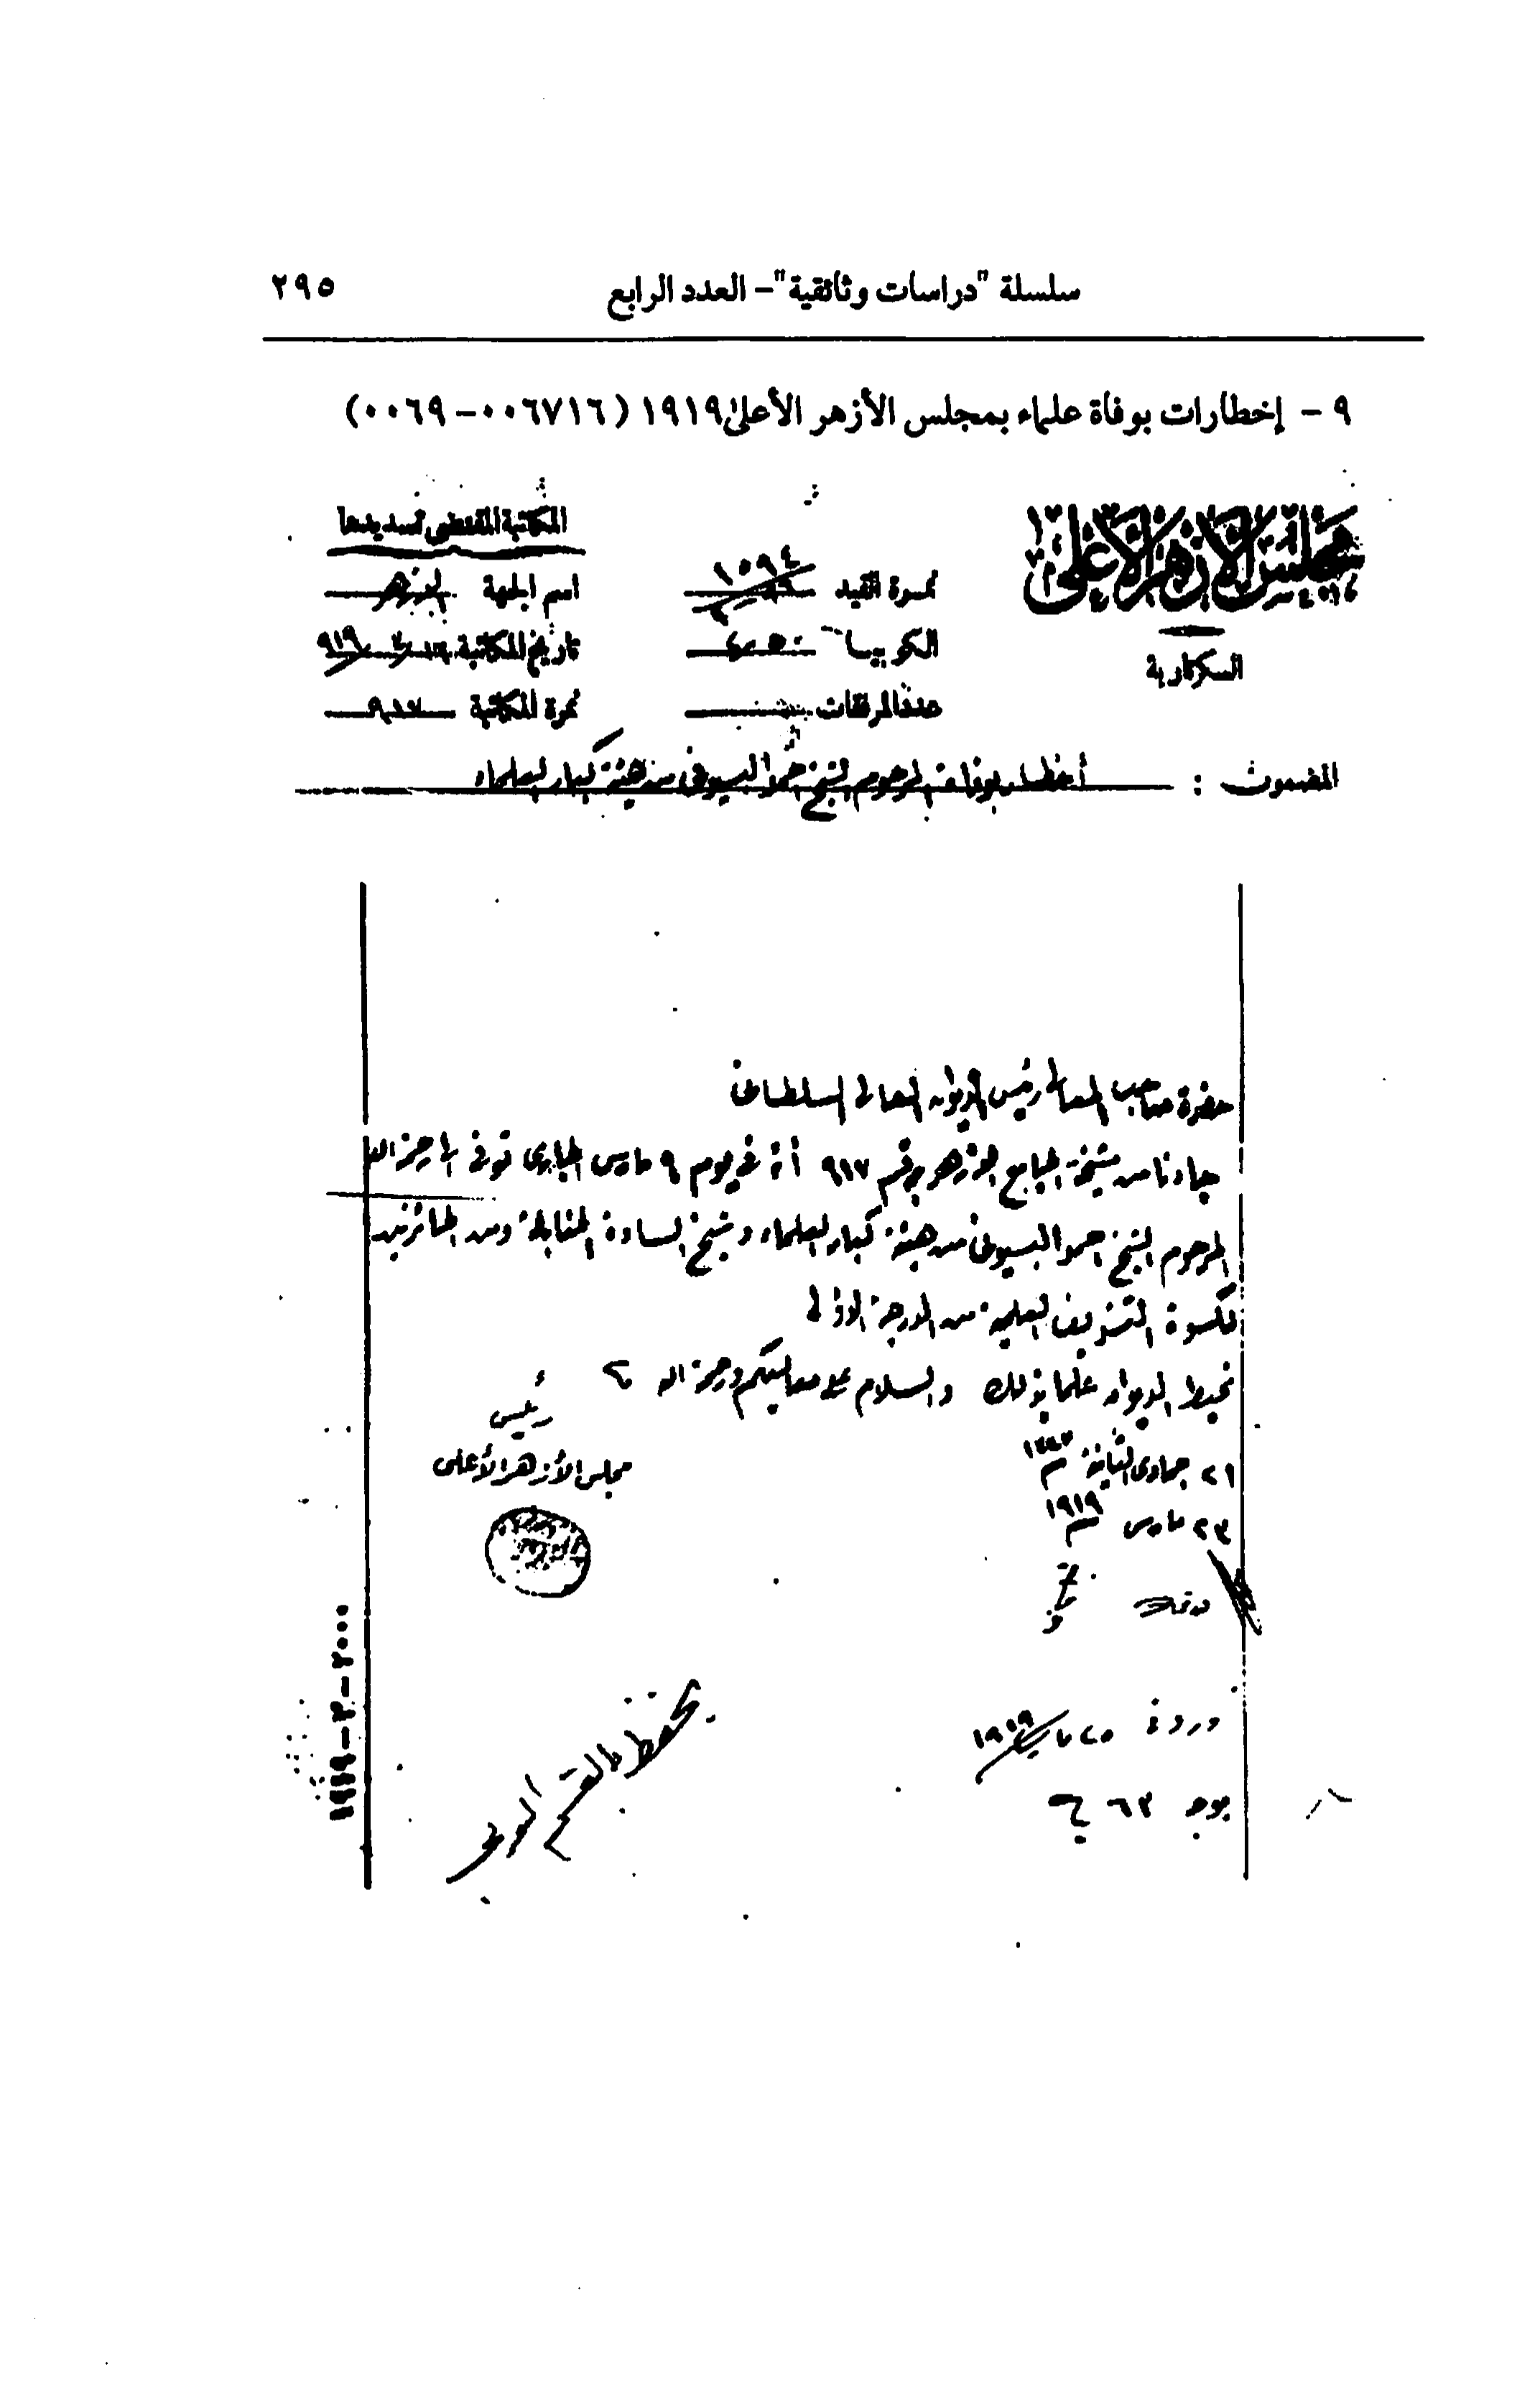 سلسلة "دراسات وثائقية" – العدد الرابع ٢٩٥
٩ – إخطارات بوفاة علماء بمجلس الأزهر الأعلى ١٩١٩ (٠٠٦٧١٦–٠٠٦٩)
مجلس الأزهر الأعلى
السكرتارية
نمرة القيد ١٥٩٤
الكوبيا ٤٠٥٠
عدد المرفقات
المكاتبة المقتضى تسديدها
اسم الجهة الأزهر
تاريخ المكاتبة ٩١٩
نمرة المكاتبة ٩١٧
المضمون : أخطار بوفاة المرحوم الشيخ احمد البسيونى من هيئة كبار العلماء
حضرة صاحب المعالى رئيس الديوان العالى السلطانى
جاءنا من مشيخة الجامع الازهر برقم ٩١٧ أنه فى يوم ٩ مارس الجارى توفى الى رحمة الله
المرحوم الشيخ احمد البسيونى من هيئة كبار العلماء وشيخ السادة الحنابلة ومن الحائزين
لكسوة التشريف العلمية من الدرجة الاولى
نحيط الديوان علما بذلك والسلام على معاليكم ورحمة الله
رئيس
مجلس الأزهر الأعلى
٢١ جمادى الثانية
٢٣ مارس ١٩١٩
ورد فى ٢٥ مارس ١٩١٩
٦٣
يحفظ بالقسم العربى
٢٠٠٠–٣–١٩١٩